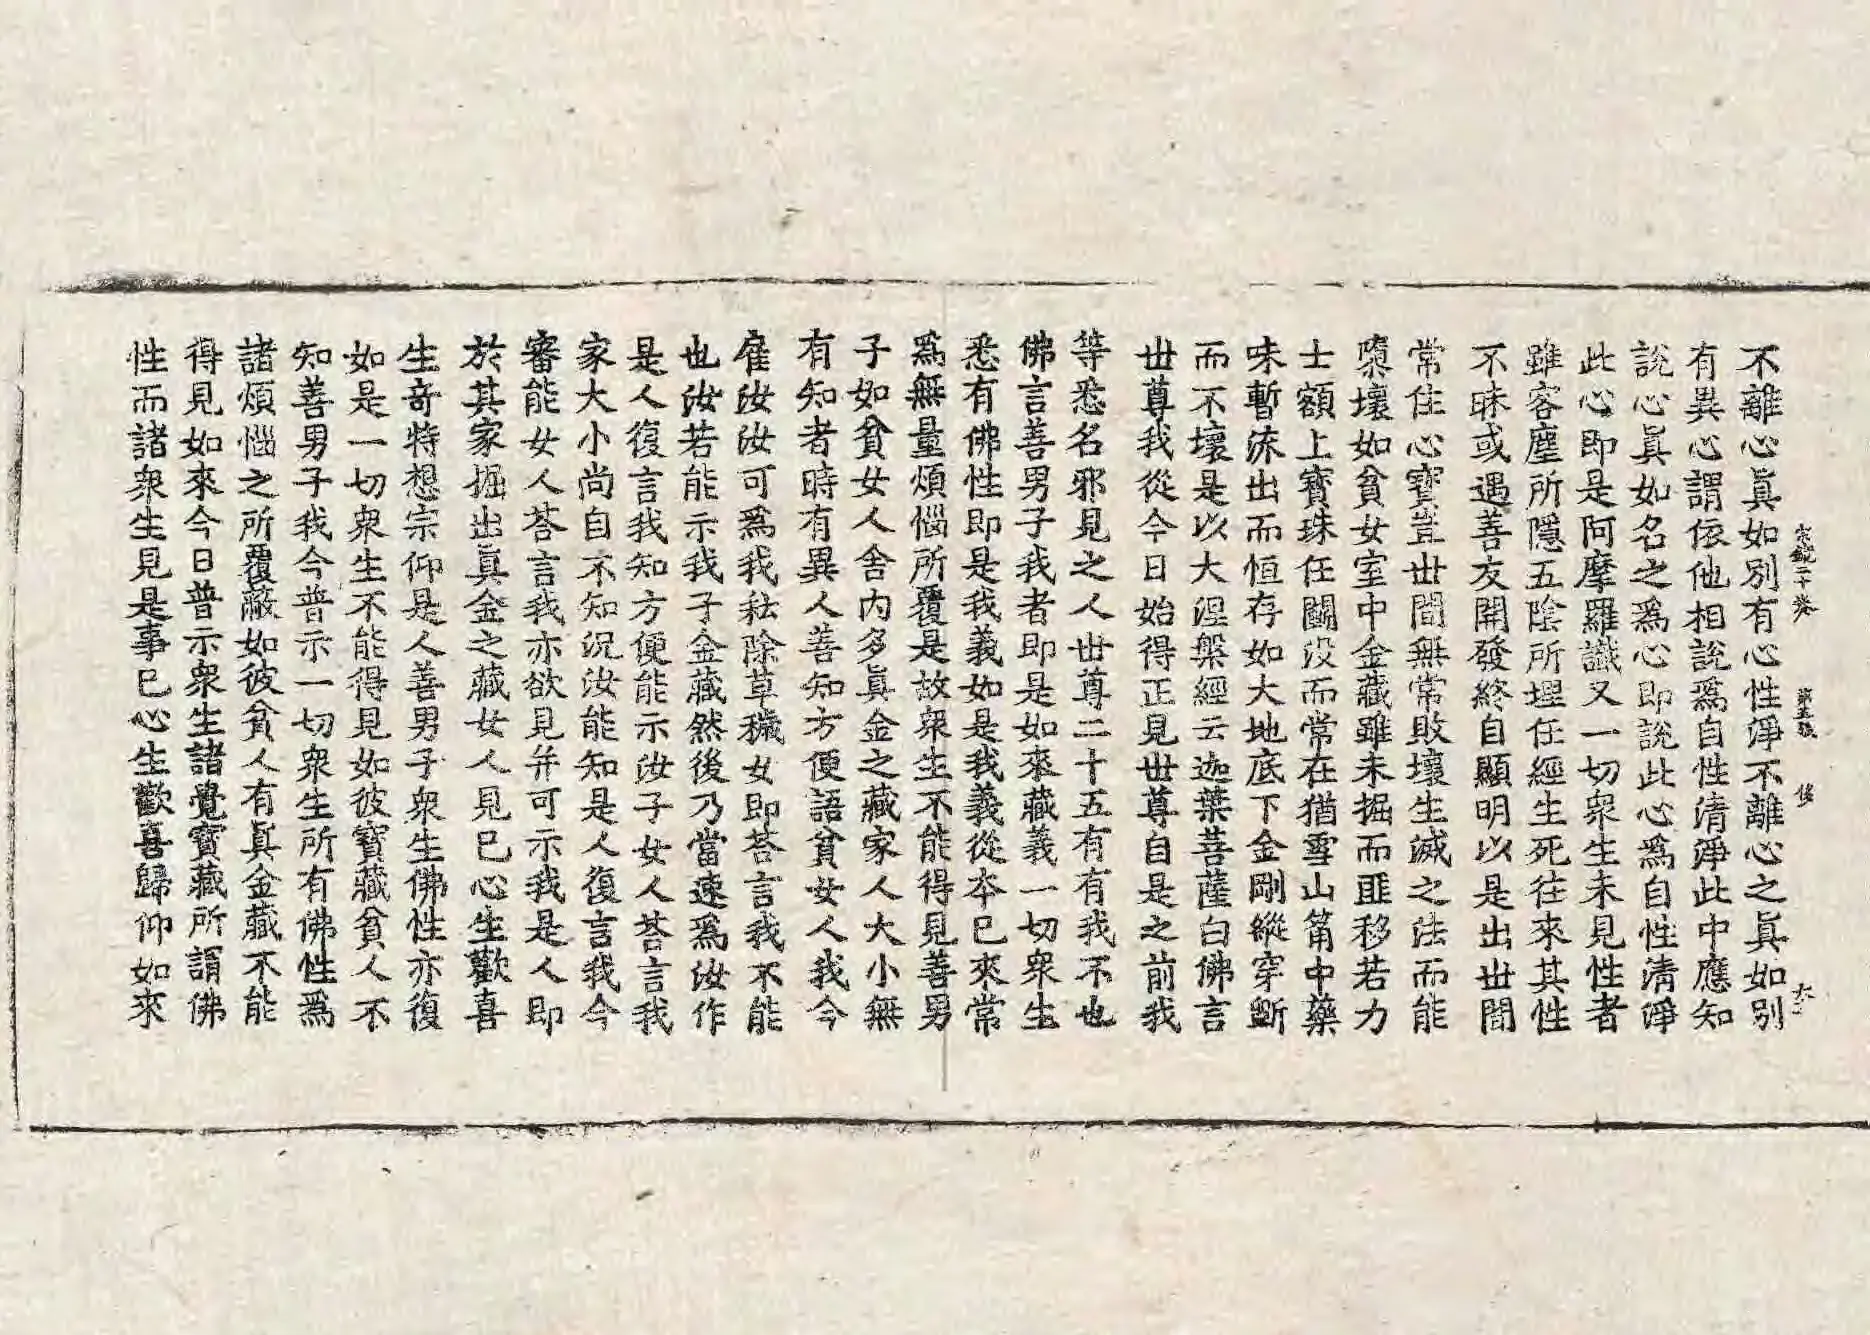 不離心眞如別有心性淨不離心之眞如別
有異心謂依他相說爲自性淸淨此中應知
說心眞如名之爲心即說此心爲自性淸淨
此心即是阿摩羅識又一切衆生未見性者
雖客塵所隱五陰所埋任經生死往來其性
不昧或遇善友開發終自顯明以是出世間
常住心寶豈世間無常敗壞生滅之法而能
隳壞如貧女室中金藏雖未掘而匪移若力
士額上寶珠任鬭没而常在猶雪山筩中藥
味暫流出而恒存如大地底下金剛縱穿斵
而不壞是以大涅槃經云迦葉菩薩白佛言
世尊我從今日始得正見世尊自是之前我
等悉名邪見之人世尊二十五有有我不也
佛言善男子我者即是如來藏義一切衆生
悉有佛性即是我義如是我義從本已來常
爲無量煩惱所覆是故衆生不能得見善男
子如貧女人舍內多眞金之藏家人大小無
有知者時有異人善知方便語貧女人我今
雇汝汝可爲我耘除草穢女即荅言我不能
也汝若能示我子金藏然後乃當速爲汝作
是人復言我知方便能示汝子女人荅言我
家大小尚自不知況汝能知是人復言我今
審能女人荅言我亦欲見并可示我是人即
於其家掘出眞金之藏女人見已心生歡喜
生奇特想宗仰是人善男子衆生佛性亦復
如是一切衆生不能得見如彼寶藏貧人不
知善男子我今普示一切衆生所有佛性爲
諸煩惱之所覆蔽如彼貧人有眞金藏不能
得見如來今日普示衆生諸覺寶藏所謂佛
性而諸衆生見是事已心生歡喜歸仰如來